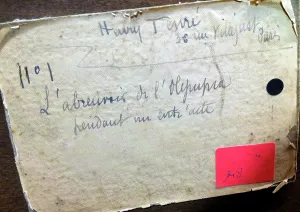 Henry Tenré
Paris
N° 1
L'abreuvoir de l'Olympia
pendant un entr'acte